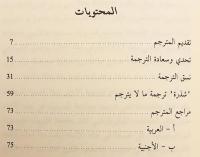 المحتويات
تقديم المترجم ........ 7
تحدي وسعادة الترجمة ........ 15
نسق الترجمة ........ 31
"شذرة" ترجمة ما لا يترجم ........ 59
مراجع المترجم ........ 73
أ - العربية ........ 73
ب - الأجنبية ........ 75